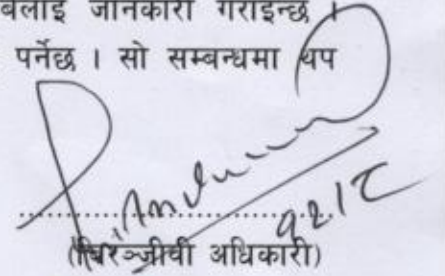 बलाई जानकारी गराइन्छ ।
पर्नेछ । सो सम्बन्धमा थप
१२/८
(चिरञ्जीवी अधिकारी)